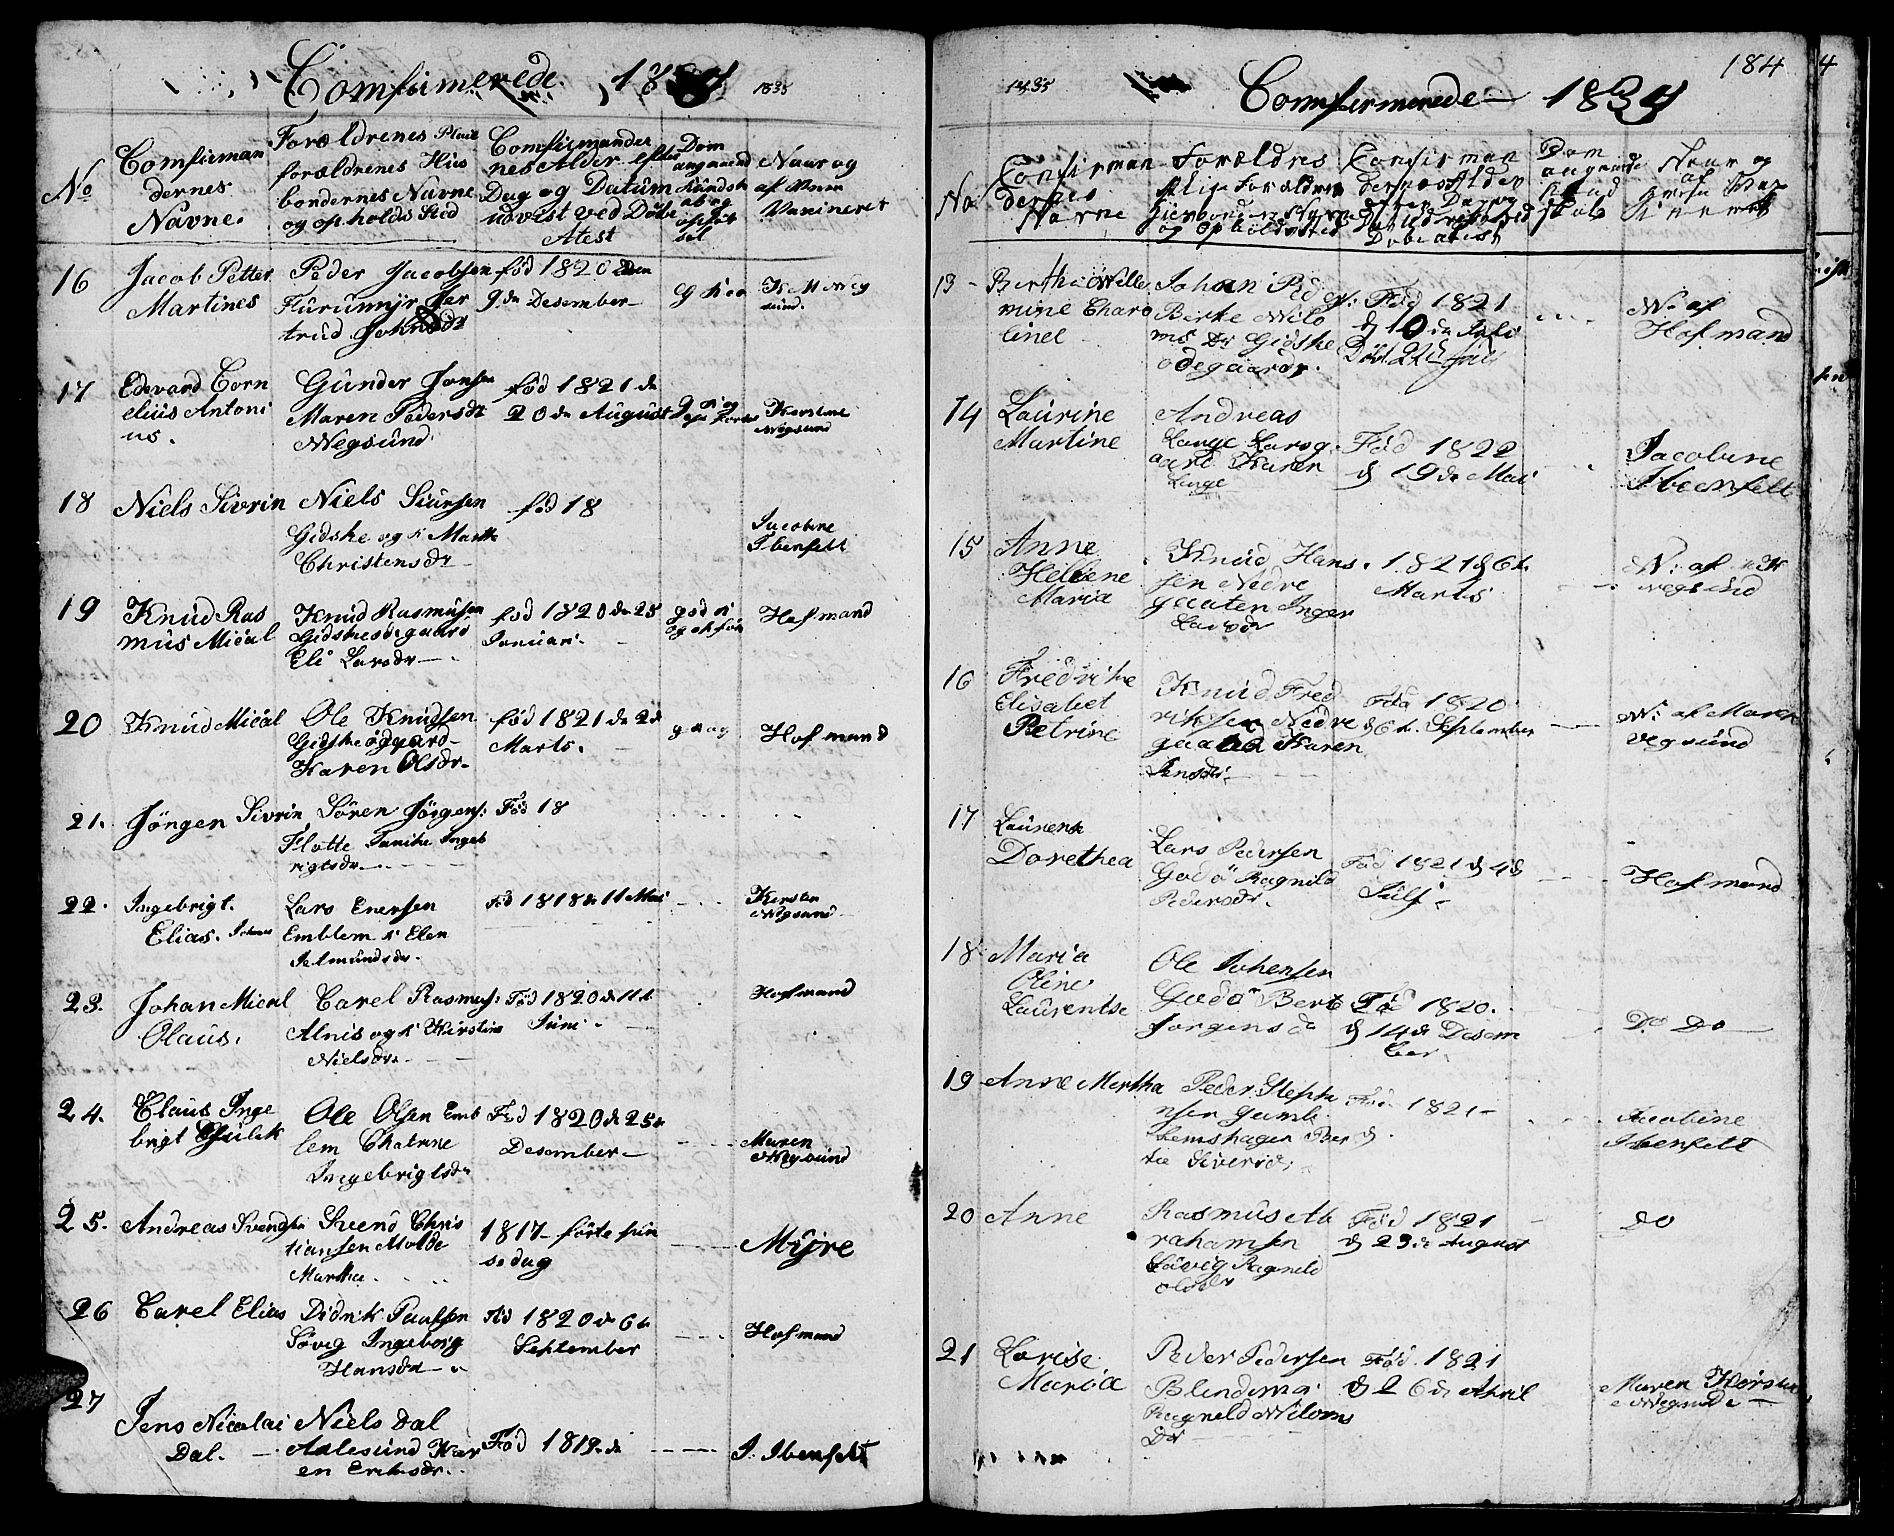 Comfirmerede 1834 1835
No
Comfirman
dernes
Navne.
Forældrenes Pleie
forældrenes Hus
bondernes Navne
og opholds Sted
Comfirmander
nes Alder efter
Dag og Datum
udvist ved Döbe
Atest
Dom
angaaend
Kundsk
ab og
opför
sel
Naar og
af
Vaxineret
16 Jacob Petter
Martines
Peder Jacobsen
Furumyr Jer
trud Johnsdr
fød 1820 den
9de Desember
17 Edevard Corn
elius Antoni
us.
Gunder Jonsen
Maren Pedersdr
Wegsund
fød 1821 de
20de August
Kirstine
Wegsund
18 Niels Sivrin
Niels Siursen
Gidske og K Marthe
Christensdr
fød 18
Jacobine
Ibenfelt
19 Knud Ras
mus Mical
Knud Rasmusen
Gidskesdegaard
Eli Larsdr
fød 1820 de 25
Januari
god K
og opför
Hofmand
20 Knud Mical
Ole Knudsen
Gidskeödgaard
Karen Olsdr
fød 1821 de 2de
Marts.
Hofmand
21. Jörgen Sivrin
Sören Jörgens:
Flotte Janike Ingeb
rigtsdr
Fød 18
22. Ingebrigt
Elias. Johans
Lars Enersen
Emblem K Elen
Jetmundsdr.
Fød 1818 de 11 Mai
Kirsten
Wegsund
23. Johan Mical
Olaus.
Carel Rasmus:
Alnis og K Kirstine
Nielsdr.
Fød 1820 de 11t
Juni
Hofmand
24. Claus Inge
brigt Gulek
Ole Olsen Emb
lem Chatrine
Ingebrigtsdr
Fød 1820 de 25t
Desember
Maren
Wegsund
25. Andreas Svendsen
Svend Chris
tiansen Molde
Martha
1817 förte pin
sedag
Myre
26 Carel Elias
Didrik Paulsen
Sövig Ingeborg
Hansdr
Fød 1820 de 6te
September
Hofmand
27 Jens Nicolai
Dal.
Niels Dal
Aalesund Kar
en Eriksdr.
Fød 1819 de
J. Ibenfelt
1835 Comfirmerede 1834 184
No
Comfirman
dernes
Navne
Forældres
Pleie Forældres
og Opholdssted
Comfirman
dernes Alder
efter Dag og
Datum udvist ved
Döbeatest
Dom
angaaende
Kund
skab
Naar og
af
13 Berthe Wille
mine Charo
linel
Johan Ped
Berte Wilo
ms Dr Gidske
odegaard.
Fød 1821
d 10de Juli
Döbt 22d Juli
N. af
Hofmand
14 Laurine
Martine
Andreas
Lange Larsg
aard Karen
Lange
Fød 1822
d 19de Mai
Jacobine
Ibenfelt
15 Anne
Hellene
Maria
Knud Hans
sen Nedre
gaaten Inger
Larsdr
1821 d 6te
Marts
N: af K
Wegsund
16 Fredrike
Elisabet
Petrine
Knud Fred
riksen Nedre
gaaten Karen
Jensdr
Fød 1820
d 6te September
N: af Maren
Vegsund
17 Laurense
Dorethea
Lars Pedersen
Godö Ragnild
Pedersdr.
Fød 1821 d 4de
Julj
Hofmand
18 Maria
Oline
Laurentse
Ole Johensen
Godö Bert
Jorgensdr
Fød 1820.
d 14de Desem
ber.
Do Do
19 Anne Martha
Peder Steph
nsen Gamb
lemshagen Ber
te Siversd:
Fød 1821
d.
Jacobine
Ibenfelt
20 Anne
Rasmus Ab
rahamsen
Sövig Ragnild
Olsdr
Fød 1821
d 23de August
do
21 Lovise
Maria
Peder Pedersen
Blindem
Ragneld Wiloms
Dr
Fød 1821
d 26de April
Maren Kirstine
Wegsund